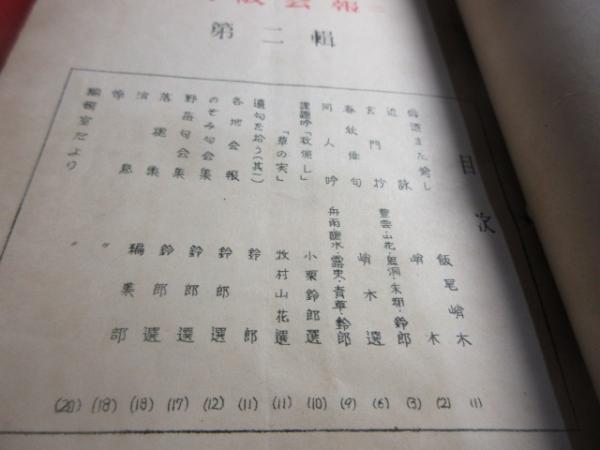 会報
第二輯
目次
俳諧また愉し 飯尾峭木 (1)
近詠 峭木 (2)
玄門抄 豊雲・山花・鬼洞・朱朗・鈴郎 (3)
春秋俳句 峭木選 (6)
同人吟 舟雨・水・露史・青草・鈴郎 (9)
課題吟「秋催し」 小栗鈴郎選 (10)
「草の実」 牧村山花選 (11)
遺句を拾う(其一) 鈴郎 (11)
各地会報
のぞみ句会集 鈴郎選 (12)
野笛句会集 鈴郎選 (17)
落穂集 鈴郎選 (18)
消息 編集部 (18)
編輯室だより 〃 (20)